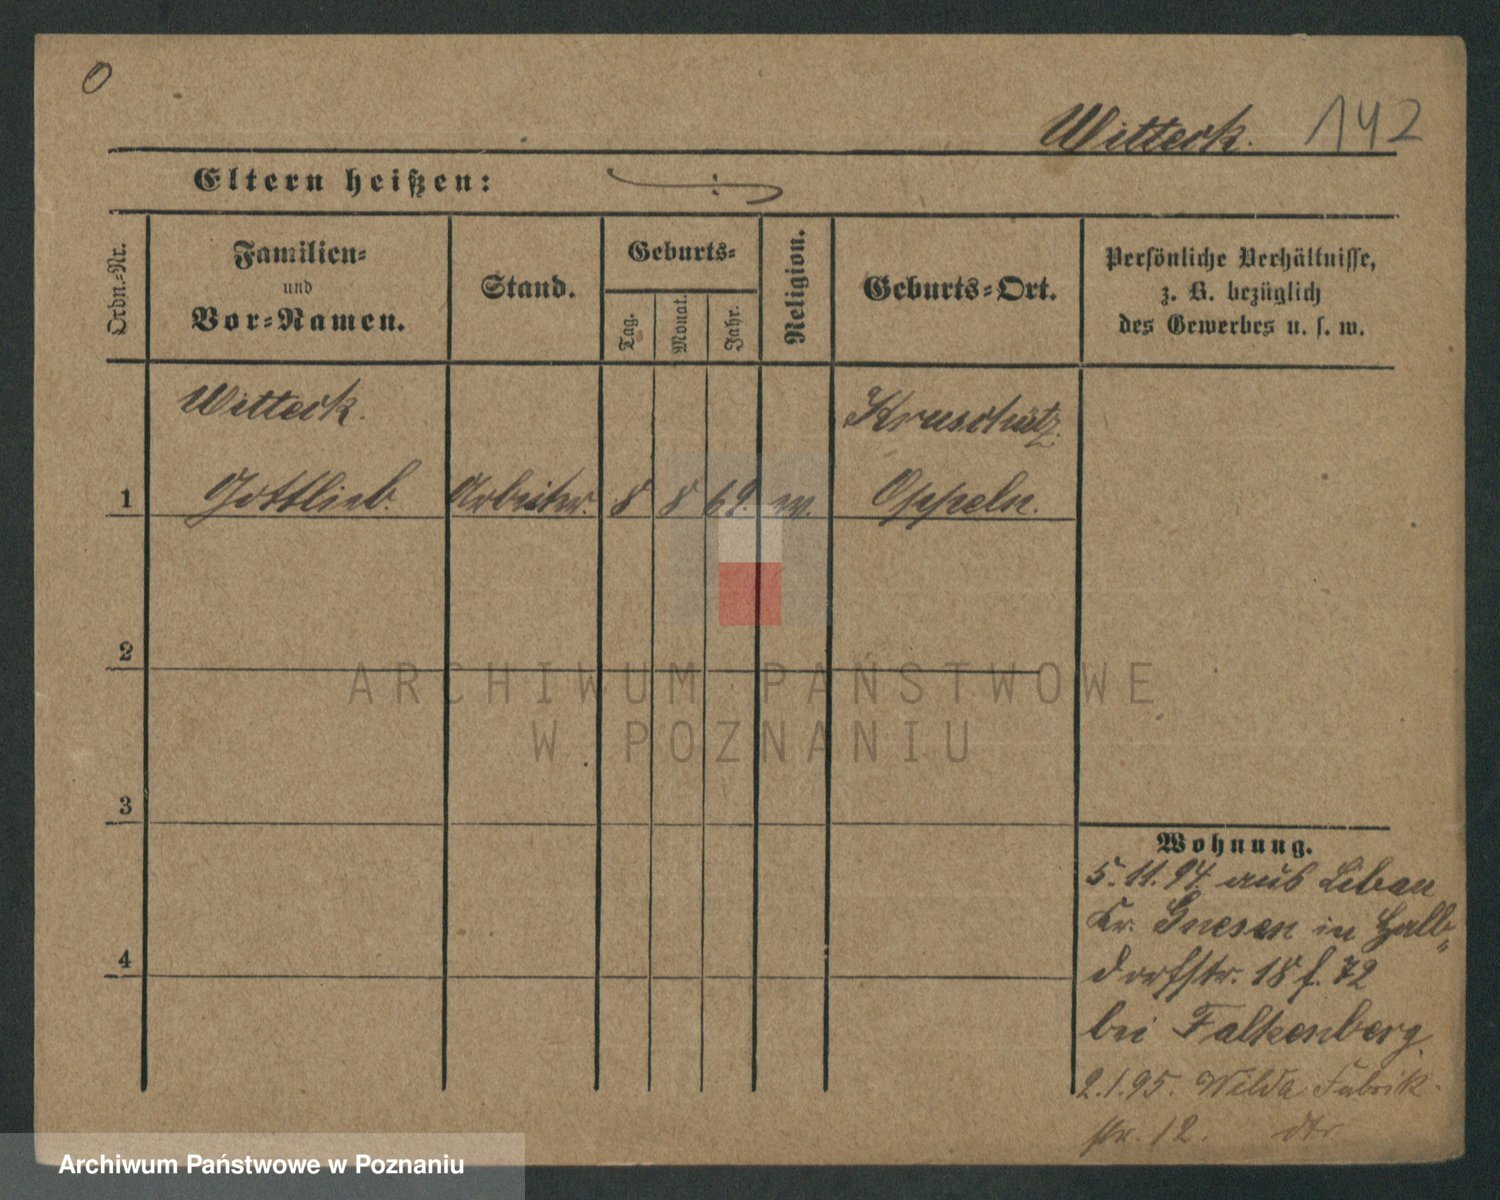 0
Witteck. 142
Eltern heißen:
Ordn.-Nr.
Familien-
und
Vor-Namen.
Stand.
Geburts-
Tag.
Monat.
Jahr.
Religion.
Geburts-Ort.
Persönliche Verhältnisse,
z. B. bezüglich
des Gewerbes u. s. w.
Witteck.
Kruschütz
1 Gottlieb. Arbeiter. 8 8 69. Oppeln.
2
3
4
Wohnung.
5.11.94. aus Liban
Kr. Gnesen in Halb-
dorfstr. 18 f. 72
bei Falkenberg.
2.1.95. Wilda Fabrik-
str. 12.
ARCHIWUM PAŃSTWOWE
W POZNANIU
Archiwum Państwowe w Poznaniu